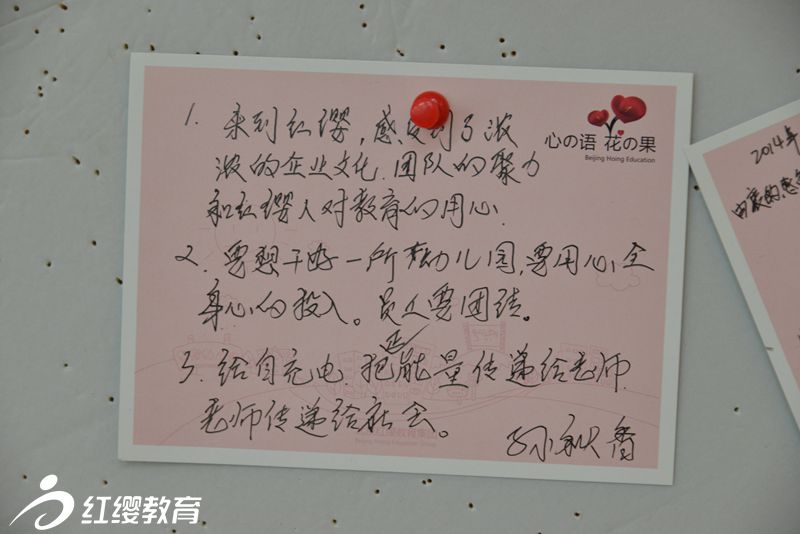 1. 来到红缨,感受到了浓
浓的企业文化.团队的聚力
和红缨人对教育的用心.
2. 要想干好一所幼儿园,要用心,全
身心的投入。员工要团结。
3. 给自充电.把正能量传递给老师.
老师传递给社会。
孙秋香
心の语 花の果
Beijing Hoing Education
红缨教育集团
Beijing Hoing Education Group
2014年
由衷的感
红缨教育